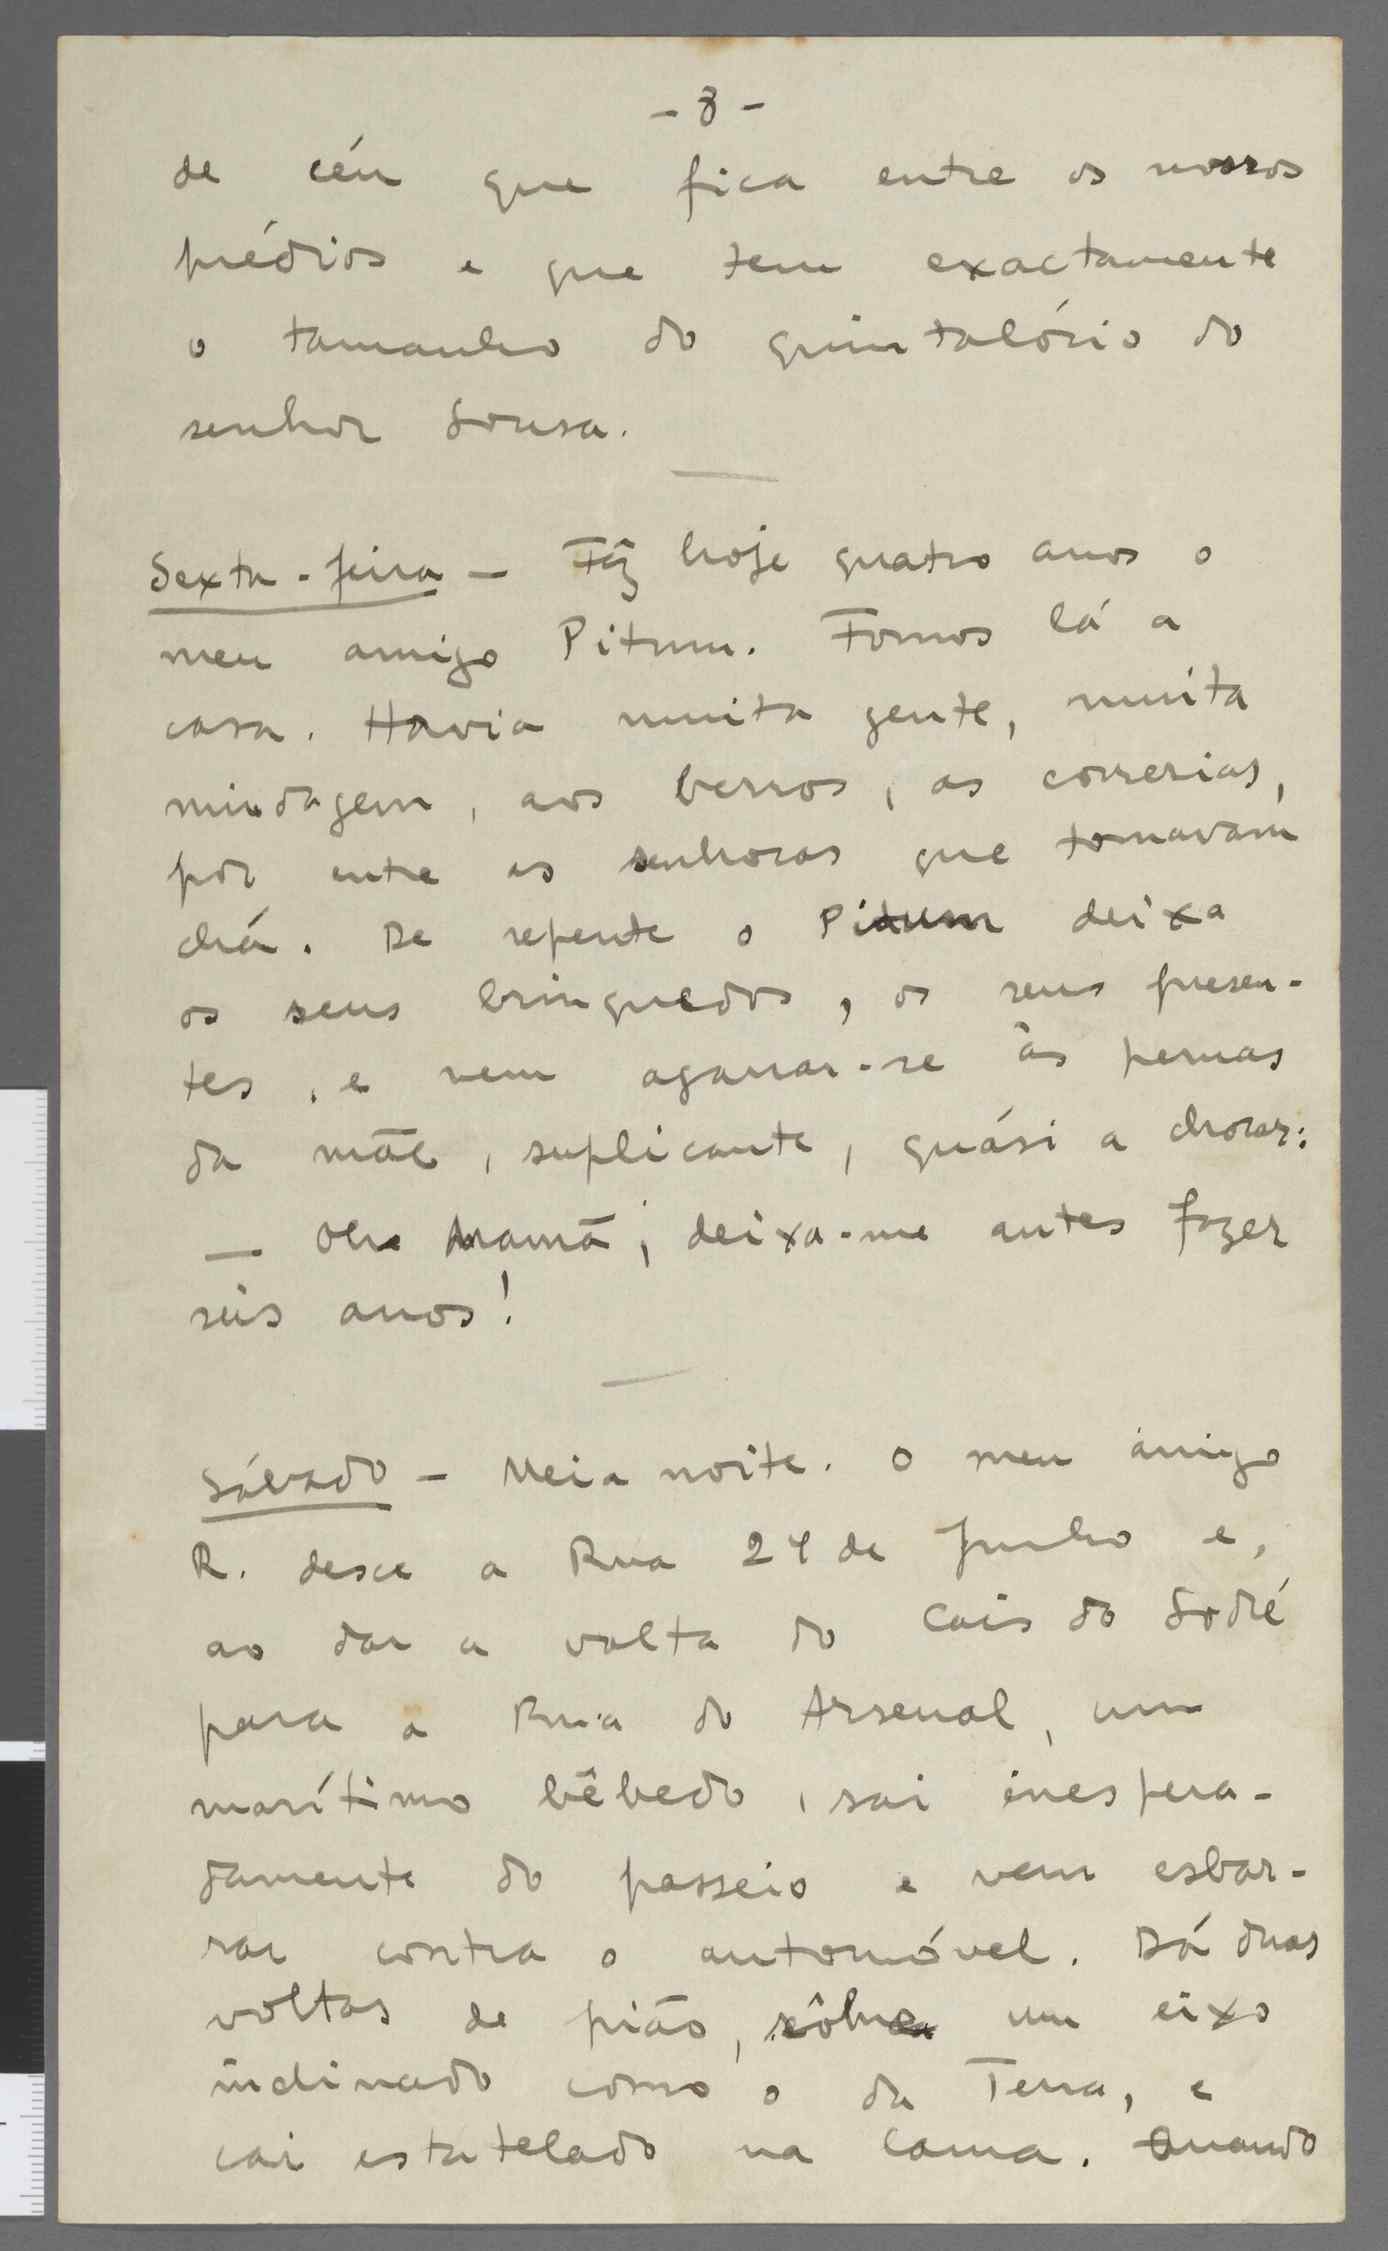 - 8 -
de céu que fica entre os nossos
prédios e que tem exactamente
o tamanho do quintalório do
senhor Sousa.
Sexta-feira — Fâz hoje quatro anos o
meu amigo Pitum. Fomos lá a
casa. Havia muita gente, muita
miudagem, aos berros, às correrias,
por entre as senhoras que tomavam
chá. De repente o Pitum deixa
os seus brinquedos, os seus presen-
tes, e vem agarrar-se às pernas
da mãe, suplicante, quási a chorar:
— Oh Mamã, deixa-me antes fazer
seis anos!
Sábado — Meia noite. O meu amigo
R. desce a Rua 24 de Julho e,
ao dar a volta do Cais do Sodré
para a Rua do Arsenal, um
marítimo bêbedo, sai inespera-
damente do passeio e vem esbar-
rar contra o automóvel. Dá duas
voltas de pião, sôbre um eixo
inclinado como o da Terra, e
cai estatelado na lama. Quando